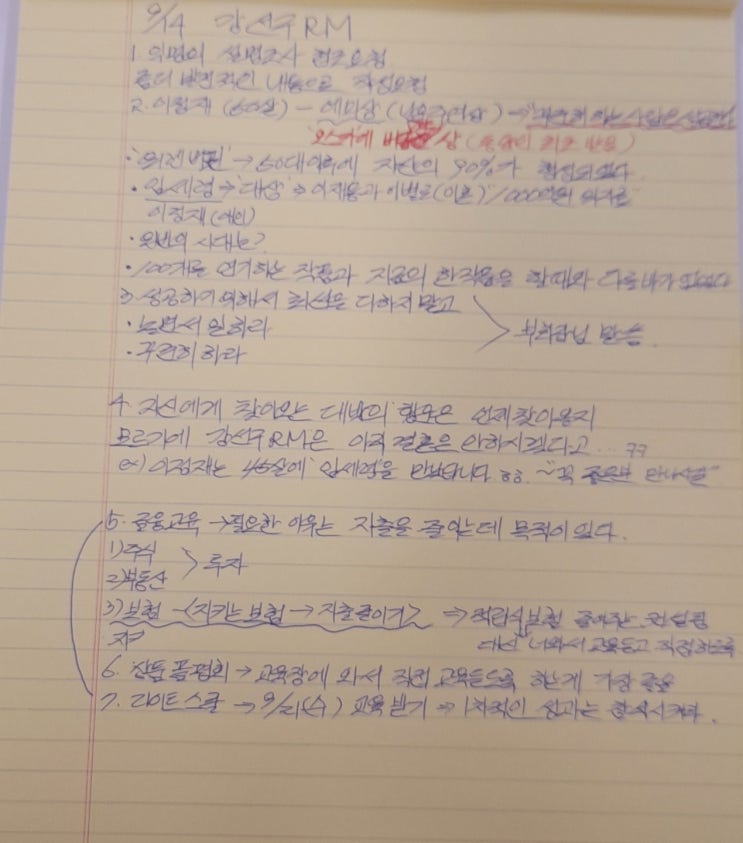 9/14 강선우RM
1. 익명의 설문조사 요청
좀더 발전적인 내용으로 작성요청
2. 이정재 (50살) - 에미상 (남우주연상) → "꾸준히 하는 사람은
오스카에 버금 상 (최초 받음)
· → 50대 이후에 자산의 90%가 형성되었다.
· 임세령 → '대상' ⇒ 이재용과 이별로(이혼) "1000억원 위자료"
이정재(애인)
· 의 시대는?
· 100개를 연기하는 작품과 지금의 한작품을 할때와 다를바가 없었다
3. 성공하기 위해서 최선을 다하지 말고
· 놀면서 일하라
· 꾸준히 하라
부회장님 말씀.
4. 자신에게 찾아오는 대박의 행운은 언제 찾아올지
모르기에 강선우RM은 아직 결혼은 안하시겠다고... ㅋㅋ
ex) 이정재는 45살에 임세령을 만났답니다. ㅎㅎ. ~"꼭 좋은분 만나시길"
5. 금융교육 → 필요한 이유는 지출을 줄이는데 목적이 있다.
1) 주식
2) 부동산
> 투자
3) 보험 - <지키는 보험 → 지출줄이기> ⇒ 보험
대신 나와서 교육듣고 직접하도록
6. 상품 품평회 → 교육장에 와서 직접 교육듣도록 하는게 가장 좋음
7. 라이트스쿨 → 9/21(수) 교육받기 ⇒ 1차적인 성과는